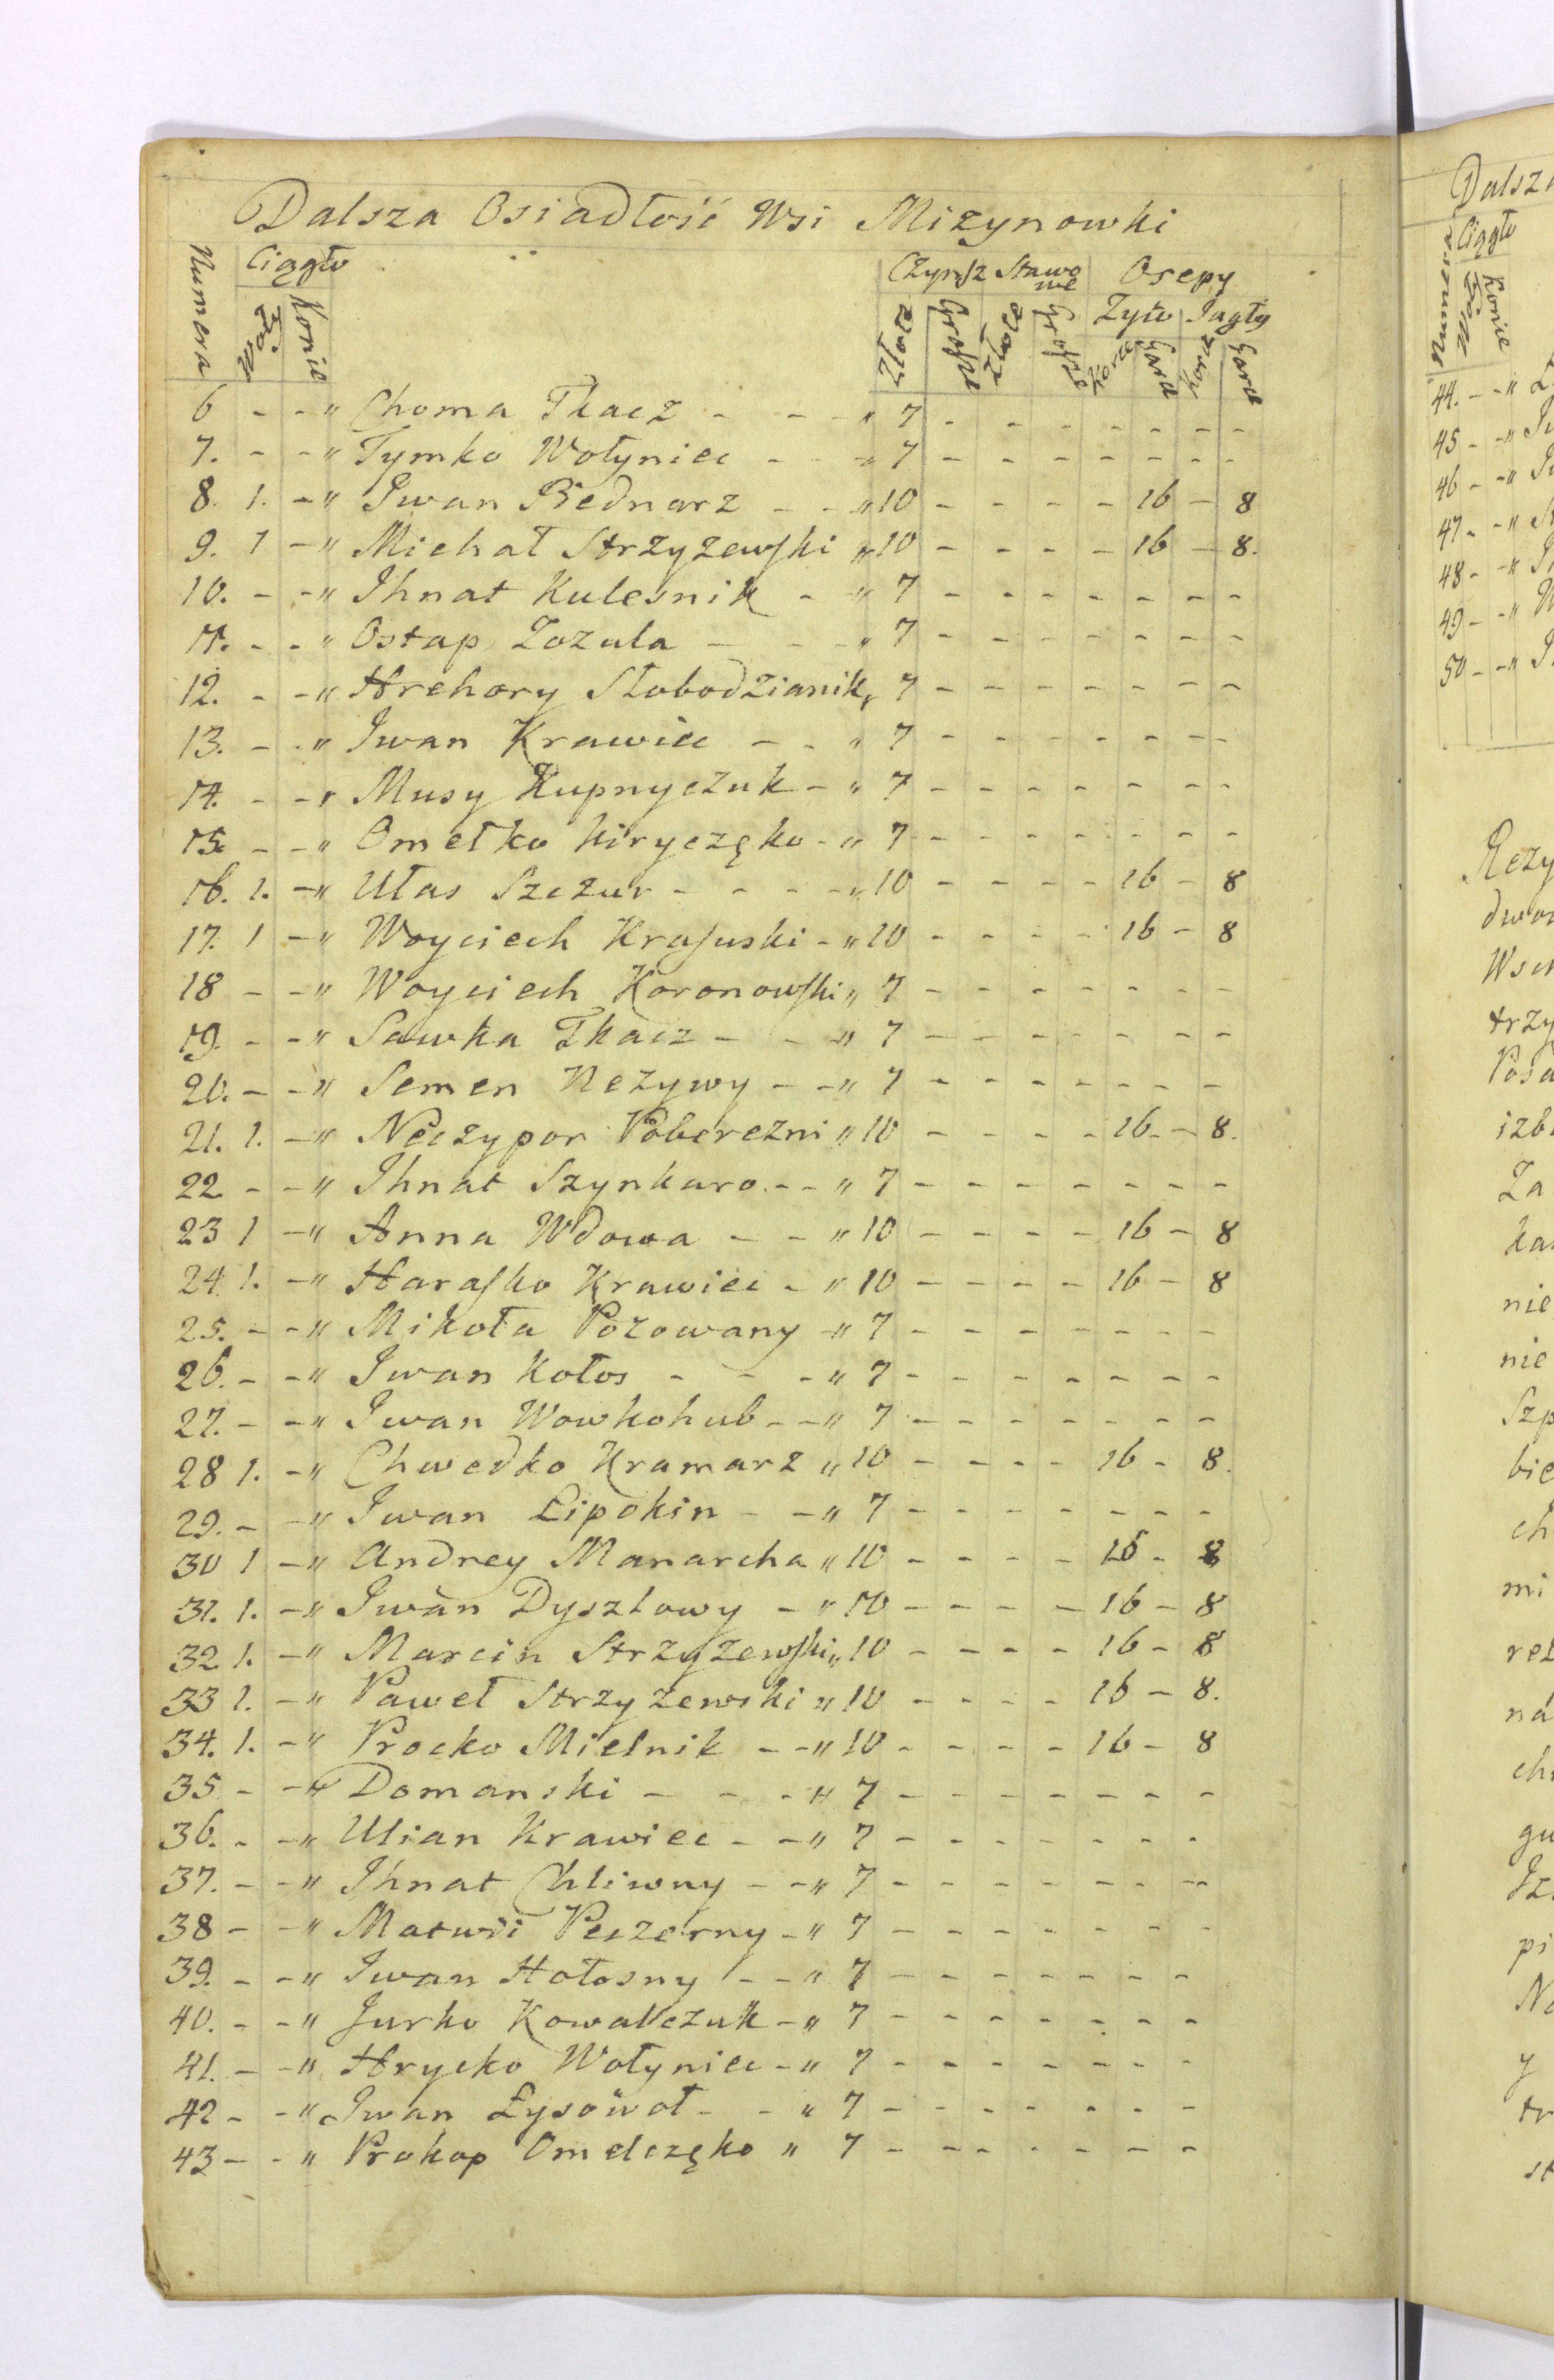 Dalsza Osiadłość Wsi Mizynowki
Numera Ciągło Konie Czynsz Stawowe Osepy
Żyto Jagły
Złotych Grosze Złotych Grosze Garce Garce
6 - - " Choma Tkacz - - - " 7 - - - - - - - -
7. - - " Tymko Wołyniec - - - " 7 - - - - - - - -
8. 1. - " Iwan Bednarz - - - " 10 - - - - - 16 - 8
9. 1 - " Michał Strzyzewski " 10 - - - - - 16 - 8.
10. - - " Ihnat Kulesnik - - " 7 - - - - - - - -
11. - - " Ostap Zozula - - - " 7 - - - - - - - -
12. - - " Hrehory Słobodzianik " 7 - - - - - - - -
13. - - " Iwan Krawiec - - " 7 - - - - - - - -
14. - - " Musy Kupnyczuk - " 7 - - - - - - - -
15. - - " Omełko Kiryczęko - " 7 - - - - - - - -
16. 1. - " Ułas Szczur - - - - " 10 - - - - - 16 - 8
17. 1 - " Woyciech Krasuski - " 10 - - - - - 16 - 8
18 - - " Woyciech Koronowski " 7 - - - - - - - -
19. - - " Sawka Tkacz - - - " 7 - - - - - - - -
20. - - " Semen Nezywy - - " 7 - - - - - - - -
21. 1. - " Neczypor Poberezni " 10 - - - - - 16 - 8.
22 - - " Ihnat Szynkaro - - " 7 - - - - - - - -
23 1 - " Anna Wdowa - - " 10 - - - - - 16 - 8
24. 1. - " Harasko Krawiec - " 10 - - - - - 16 - 8
25. - - " Mikoła Pozowany - " 7 - - - - - - - -
26. - - " Iwan Kołos - - - " 7 - - - - - - - -
27. - - " Iwan Wowkohub - - " 7 - - - - - - - -
28 1. - " Chwedko Kramarz " 10 - - - - - 16 - 8.
29. - - " Iwan Lipokin - - " 7 - - - - - - - -
30 1 - " Andrey Manarcha " 10 - - - - - 16 - 8
31. 1. - " Iwan Dyszlowy - " 10 - - - - - 16 - 8
32. 1. - " Marcin Strzyzewski " 10 - - - - - 16 - 8
33 1. - " Paweł Strzyzewski " 10 - - - - - 16 - 8.
34. 1. - " Procko Mielnik - - " 10 - - - - - 16 - 8
35 - - " Domanski - - - " 7 - - - - - - - -
36. - - " Ulian Krawiec - - " 7 - - - - - - - -
37. - - " Ihnat Chliwny - - " 7 - - - - - - - -
38 - - " Matwii Peczerny - " 7 - - - - - - - -
39. - - " Iwan Hołosny - - " 7 - - - - - - - -
40. - - " Jurko Kowalczuk - " 7 - - - - - - - -
41. - - " Hrycko Wołyniec - " 7 - - - - - - - -
42 - - " Iwan Łysowoł - - " 7 - - - - - - - -
43 - - " Prokop Omelczęko " 7 - - - - - - - -
Dalsza
Ciągło
Konie
44. - - "
45 - - "
46 - - "
47 - - "
48 - - "
49 - - "
50 - - "